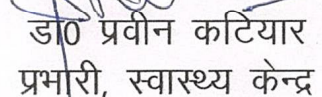 डा0 प्रवीन कटियार
प्रभारी, स्वास्थ्य केन्द्र